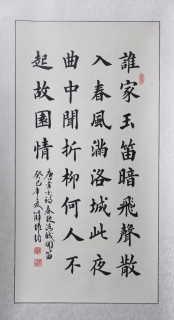 誰家玉笛暗飛聲散
入春風滿洛城此夜
曲中聞折柳何人不
起故園情
唐李白詩春夜洛城聞笛
癸巳年夏